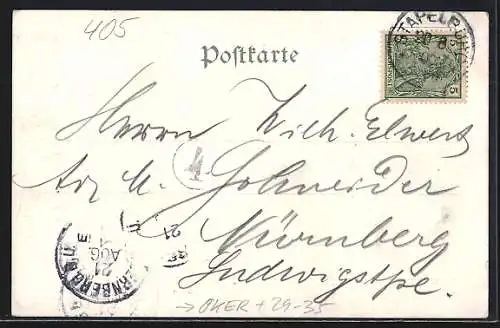 405
Postkarte
STAPELBURG
5
Herrn Rich. Elwert
Adr. H. Schneider
4
Nürnberg
21 AUG
Ludwigstr.
→ OKER + 29-35